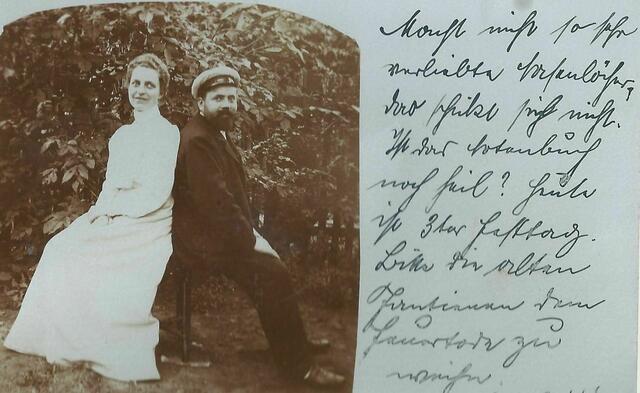 Macht nicht so sehr
verliebte Nasenlöcher,
das schickt sich nicht.
Ist das Notenbuch
noch heil? Heute
ist 3ter Festtag.
Bitte die alten
Pantienen dem
Feuertode zu
weihn.